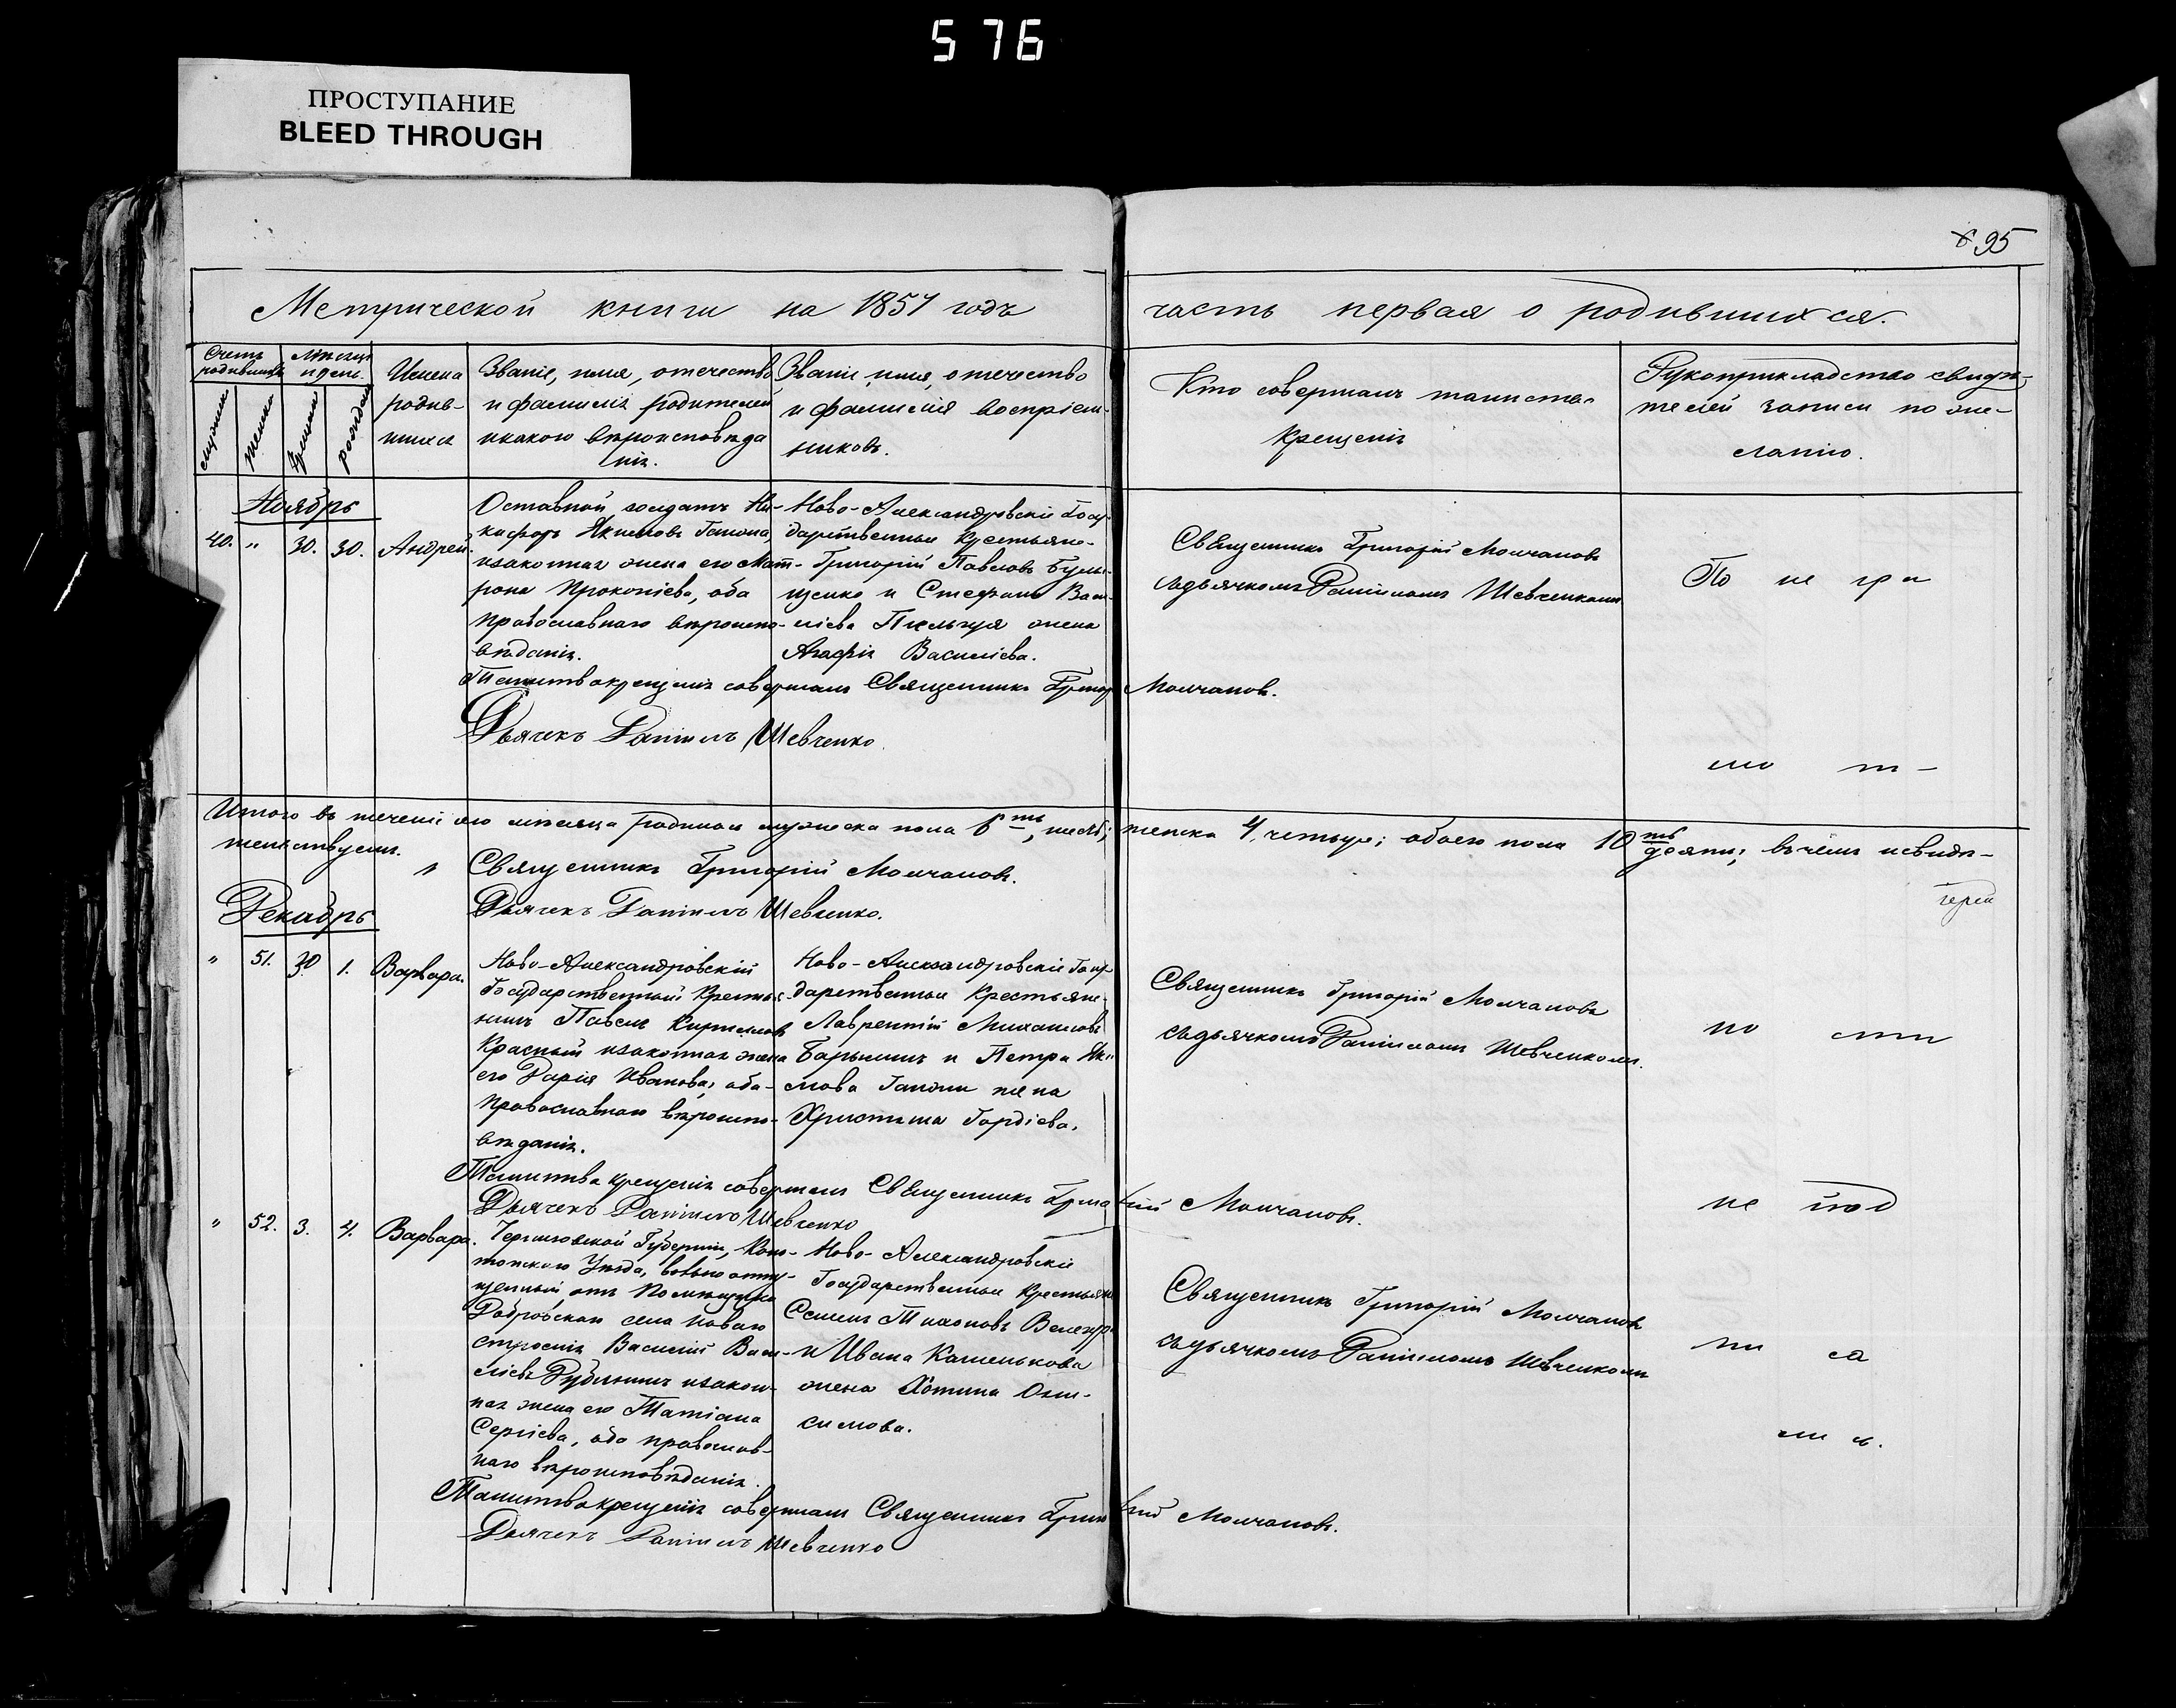 576
ПРОСТУПАНИЕ
BLEED THROUGH
95
Метрической книги на 1857 годъ часть первая о родившихся.
Счетъ родившихся
Мѣсяцъ и день.
мужеска
женска
крещен.
рожден.
Имена
родив-
шихся
Званіе, имя, отечество
и фамилія родителей
и какого вѣроисповѣда
нія.
Званіе, имя, отечество
и фамилія воспріем-
никовъ.
Кто совершалъ таинство
крещенія
Рукоприкладство свидѣ-
телей записи по же-
ланію.
Ноябрь
40. " 30. 30. Андрей.
Оставной солдатъ Ни-
кифоръ Якимовъ Гапона,
и законная жена его Мат-
рона Прокопіева, оба
православнаго вѣроиспо-
вѣданія.
Ново-Александровскіе Госу-
дарственные крестьяне
Григорій Павловъ
и Стефана Васи-
лієва жена
Агафія Василіева.
Священникъ Григорій Молчановъ
съ дьячкомъ Даніиломъ Шевченкомъ
По не гра
Таинство крещенія совершалъ Священникъ Григор Молчановъ.
Дьячекъ Даніилъ Шевченко
мо т-
Итого въ теченіе сего мѣсяца родилось мужеска пола 6ть, шесть; женска 4, четыре; обоего пола 10ть десять; въ чемъ и свидѣ-
тельствуемъ.
" Священникъ Григорій Молчановъ.
Дьячекъ Даніилъ Шевченко.
іерей
Декабрь
" 51. 30 1. Варвара.
Ново-Александровскій
Государственный крестья-
нинъ Павелъ Кирилловъ
Красный и законная жена
его Дарія Иванова, оба
православнаго вѣроиспо-
вѣданія.
Ново-Александровскіе Госу-
дарственные крестьяне
Лаврентій Михаиловъ
Барышинъ и Петра Яки-
мова Гапоны жена
Христина Гордіева.
Священникъ Григорій Молчановъ
съ дьячкомъ Даніиломъ Шевченкомъ.
но сти
Таинство крещенія совершалъ Священникъ Григорій Молчановъ.
Дьячекъ Даніилъ Шевченко
не под
" 52. 3. 4. Варвара.
Черниговской Губерніи, Коно-
топскаго Уѣзда, вольноотпу-
щенный отъ Помѣщика
села Новаго
Василій Васи-
лієвъ и закон-
ная жена его Татіана
Сергіева, оба православ-
наго вѣроисповѣданія.
Ново-Александровскіе
Государственные крестьяне
Семенъ Тихоновъ
и Ивана Каменькова
жена Хотина Они-
симова.
Священникъ Григорій Молчановъ
съ дьячкомъ Даніиломъ Шевченкомъ
пи са
ли ь.
Таинство крещенія совершалъ Священникъ Григорій Молчановъ.
Дьячекъ Даніилъ Шевченко